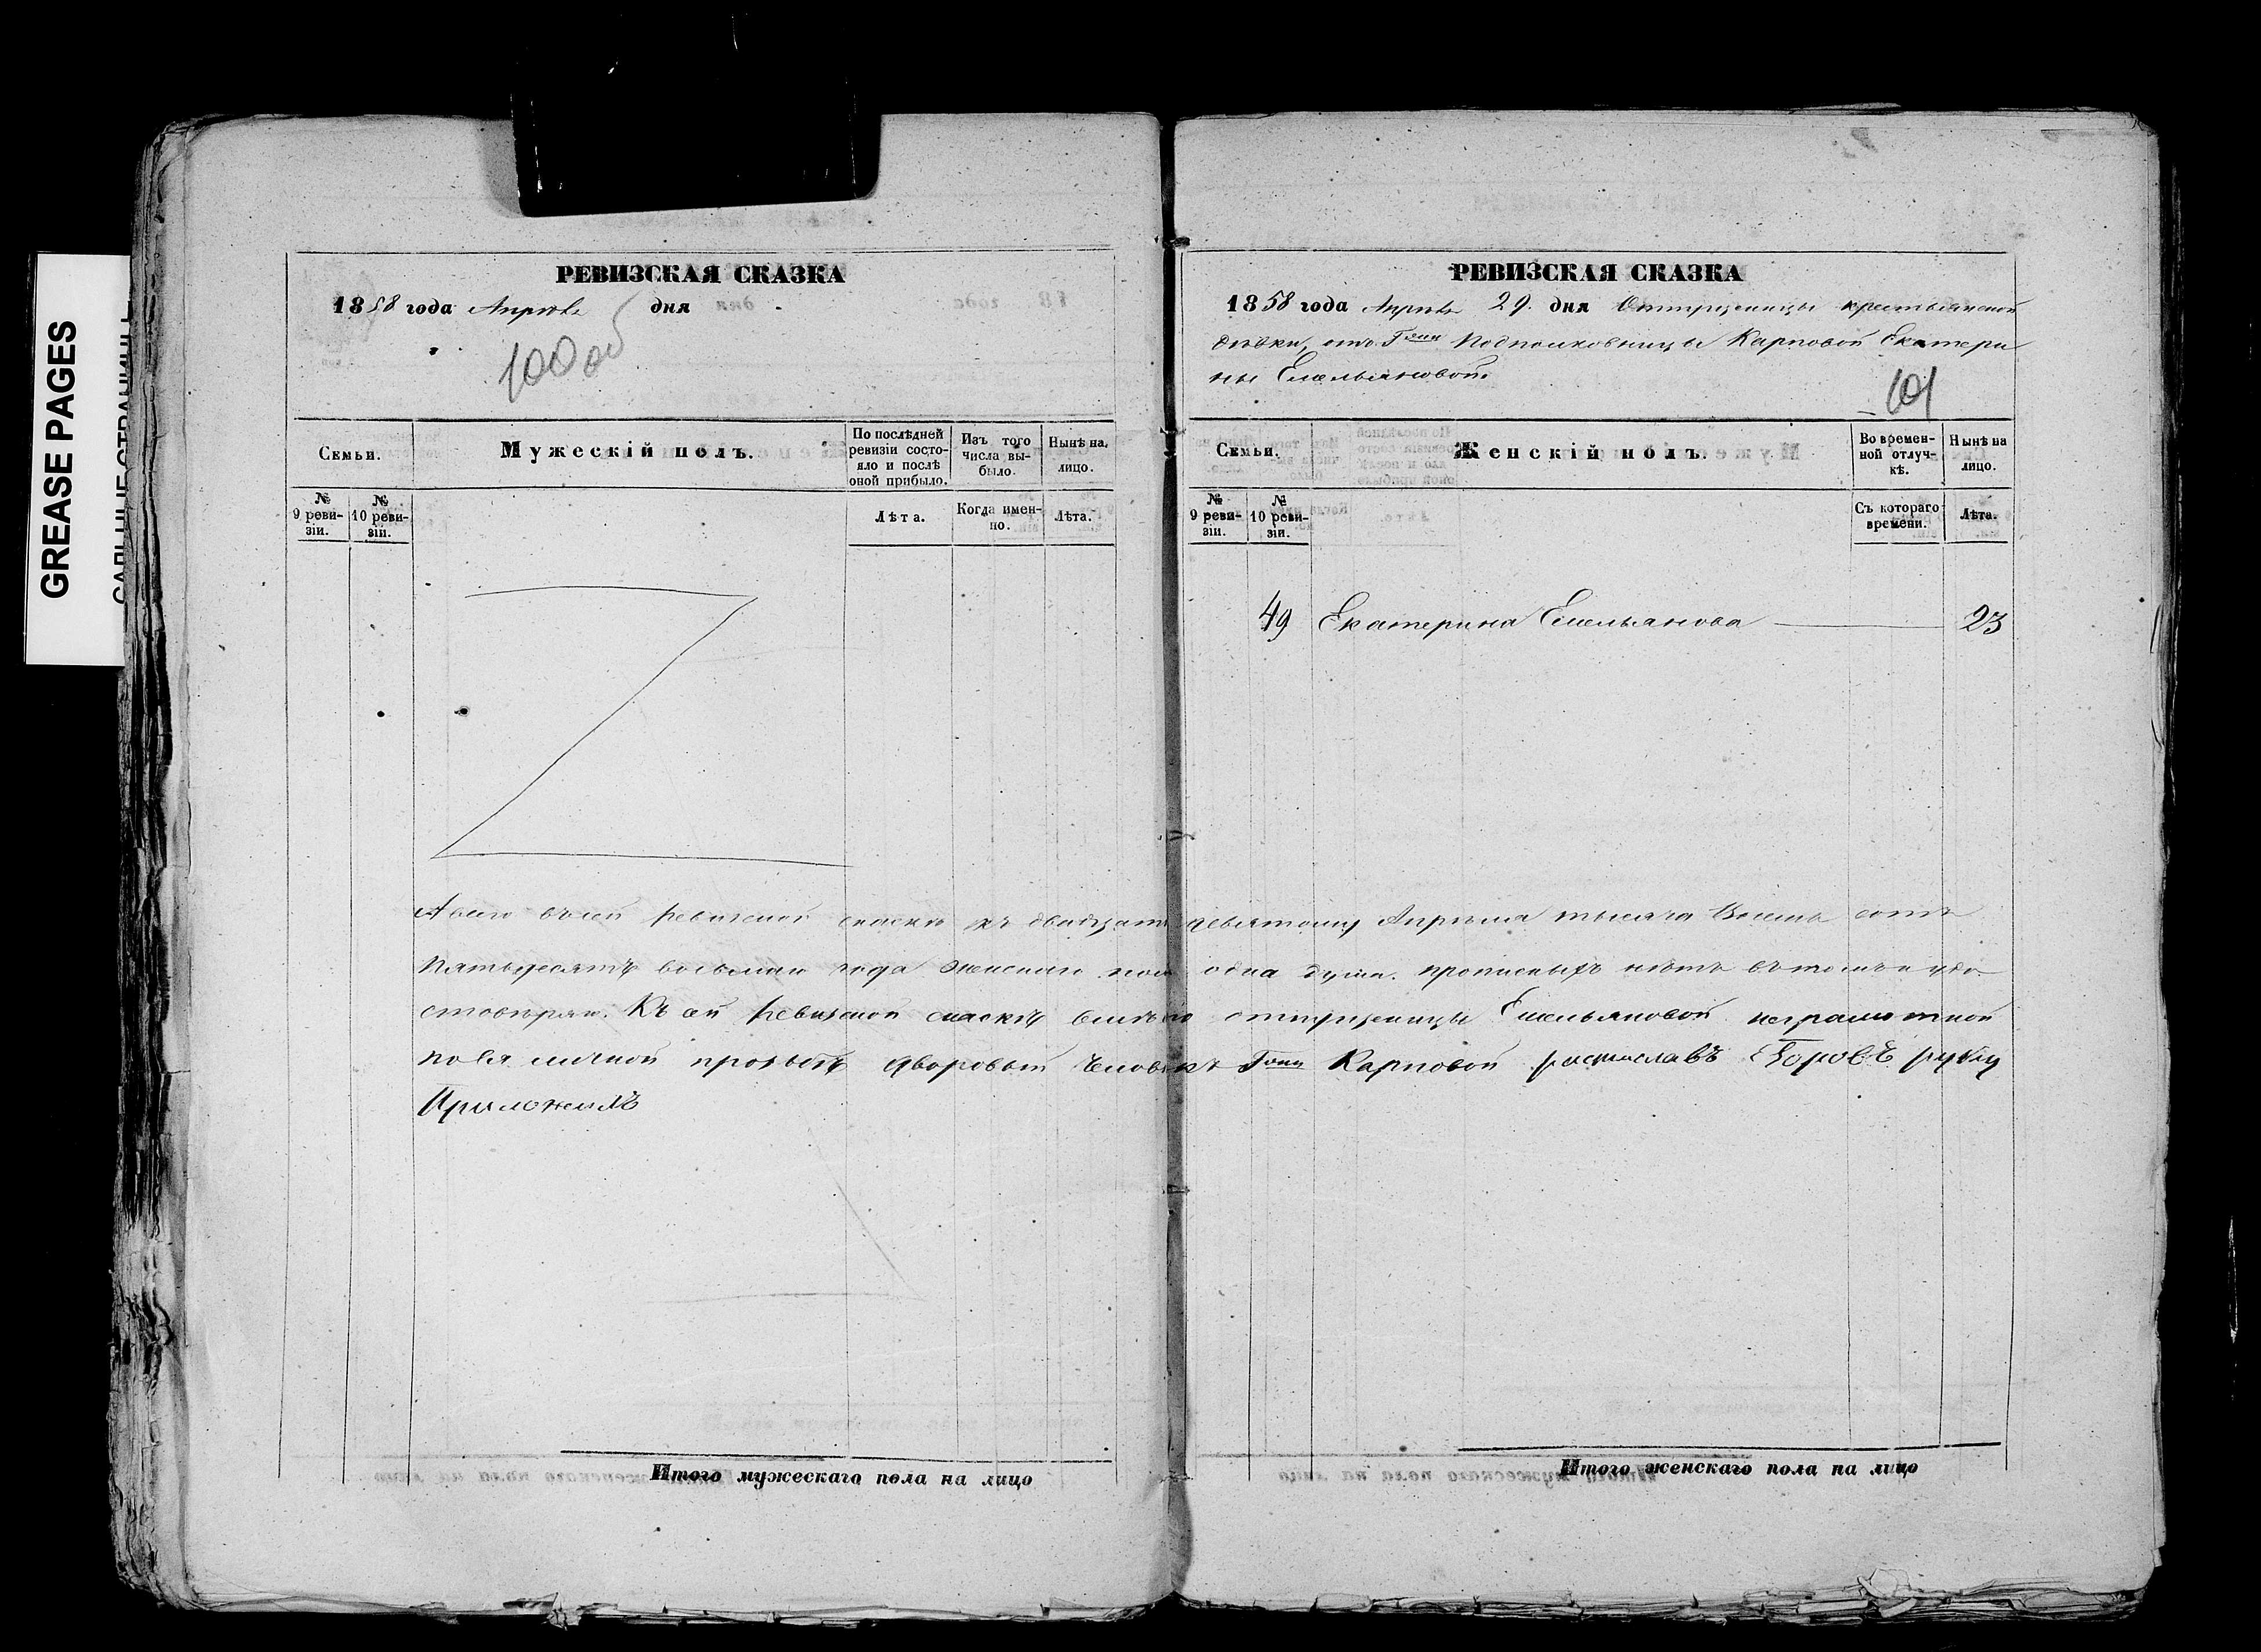 GREASE PAGES
РЕВИЗСКАЯ СКАЗКА
1858 года Апрѣля дня
100 об
Семьи.
Мужескій полъ.
По послѣдней ревизіи состояло и послѣ оной прибыло.
Изъ того числа выбыло.
Нынѣ на лицо.
№ 9 ревизіи.
№ 10 ревизіи.
Лѣта.
Когда именно.
Лѣта.
РЕВИЗСКАЯ СКАЗКА
1858 года Апрѣля 29. дня Отпущеницы крестьянской
дѣвки, отъ Гжи Подполковницы Карповой Екатери
ны Емельяновой.
101
Семьи.
Женскій полъ.
Во временной отлучкѣ.
Нынѣ на лицо.
№ 9 ревизіи.
№ 10 ревизіи.
Съ котораго времени.
Лѣта.
49 Екатерина Емельянова 23
А всего въ сей ревизской скаскѣ къ двадцать девятому Апрѣля тысяча Восемь сотъ
Пятьдесятъ восьмаго года женскаго пола одна душа. прописныхъ нѣтъ въ томъ и удо
стовѣряю. Къ сей Ревизской скаскѣ вмѣсто отпущеницы Емельяновой неграмотной
по ея личной прозьбѣ дворовый человѣкъ Гжи Карповой руку
Приложилъ
Итого мужескаго пола на лицо
Итого женскаго пола на лицо